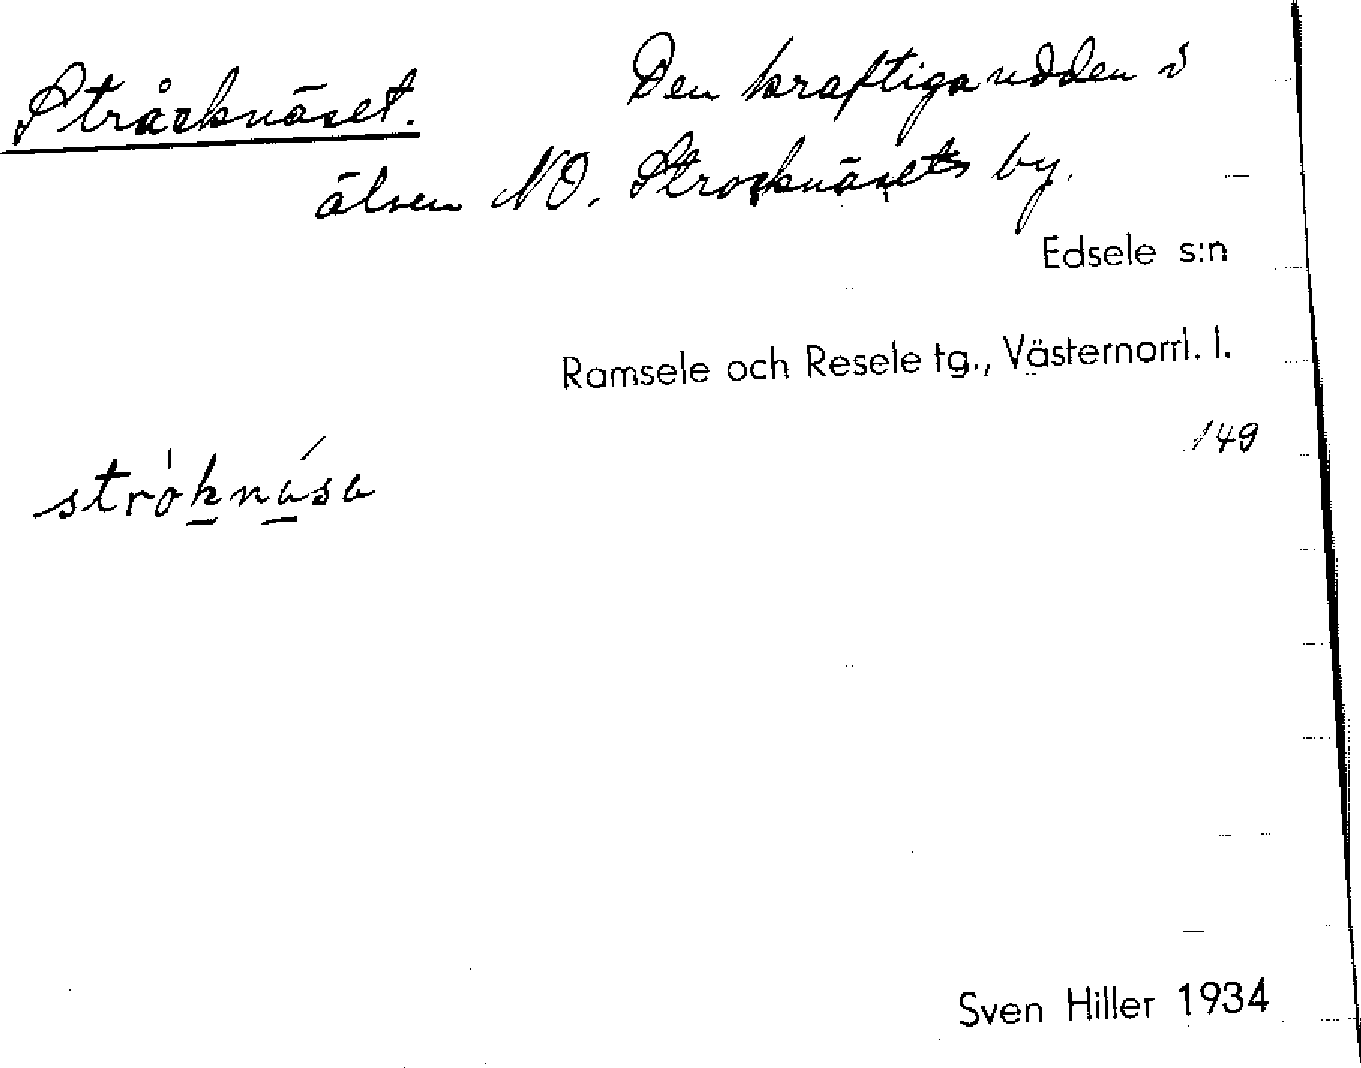 Stråcknäset. Den kraftiga udden i
älven NO. Strocknäsets by.
Edsele s:n
Ramsele och Resele tg., Västernorrl. l.
149
stróknása
Sven Hiller 1934